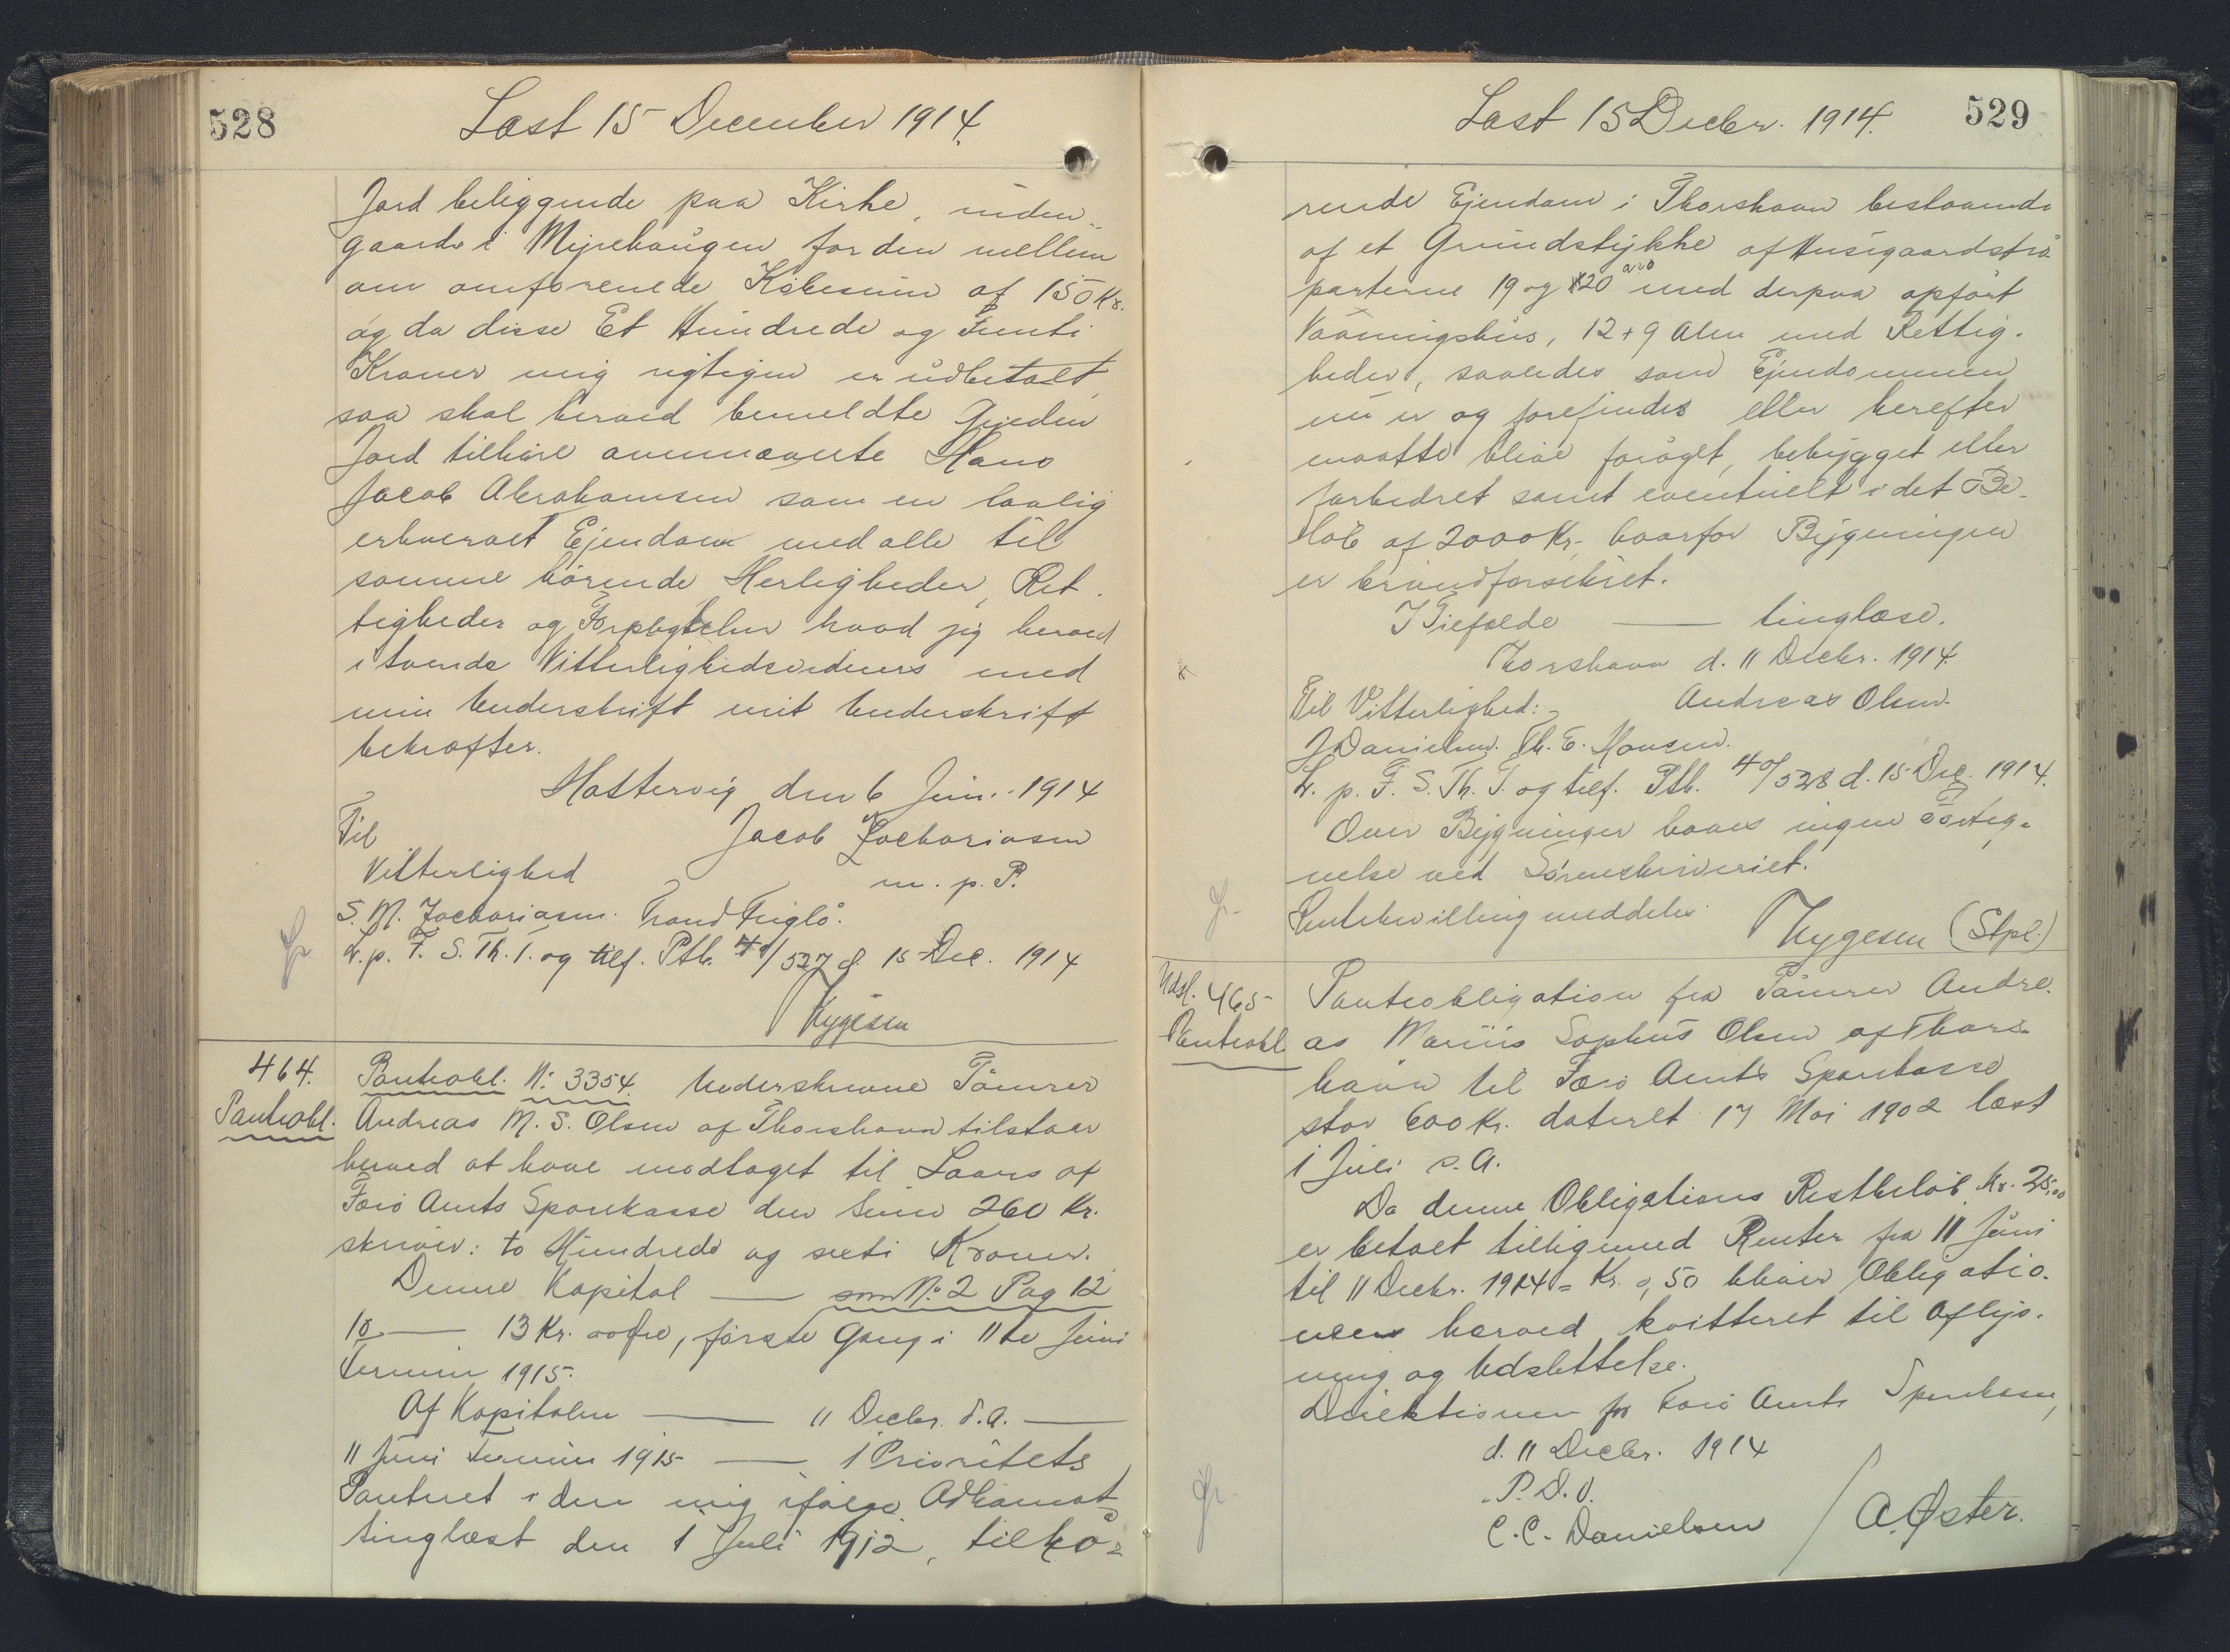 528
Læst 15 December 1914.
Jord beliggende paa Kirke, inden-
gaards i Myrehaugen for den mellem
os omforenede Købesum af 150 Kr.
og da disse Et Hundrede og Femti
Kroner mig rigtigen er udbetalt,
saa skal herved bemeldte
Jord tilhøre ovennævnte Hans
Jacob Abrahamsen som en lovlig
erhvervet Ejendom med alle til
samme hørende Herligheder, Ret-
tigheder og Forpligtelser hvad jeg herved
i tvende Vitterlighedsvidners med
min Underskrift mit Underskrift
bekræfter.
Hattervig den 6 Juni 1914
Til Jacob Zachariasen
Vitterlighed m. p. P.
S. M. Zachariasen. Trond
L. p. F. S. Th. T. og tilf. Ptb. 40/527 d. 15 Dec. 1914
Thygesen
464. Panteobl. No. 3354. Underskrevne Tömrer
Pantobl. Andreas M. S. Olsen af Thorshavn tilstaar
herved at have modtaget til Laans af
Færø Amts Sparekasse den Sum 260 Kr.
skriver: to Hundrede og sexti Kroner.
Denne Kapital — som No. 2 Pag 12
10 — 13 Kr. 00 Øre, første Gang i 11te Juni
Termin 1915.
Af Kapitalen — 11 Decbr. d. A. —
11 Juni Termin 1915 — 1 Prioritets
Panteret i den mig ifølge Adkomst
tinglæst den 1 Juli 1912, tilhø-
Læst 15 Decbr. 1914. 529
rende Ejendom i Thorshavn bestaaende
af et Grundstykke af Husigaardstrå
parterne 19 og 20 med derpaa opført
Vaaningshus, 12 × 9 Alen med Rettig-
heder, saaledes som Ejendommen
nu er og forefindes eller herefter
maatte blive forøget, bebygget eller
forbedret samt eventuelt i det Be-
løb af 2000 Kr. hvorfor Bygningen
er brandforsikret.
I Tilfælde — tinglæse.
Thorshavn d. 11 Decbr. 1914.
Til Vitterlighed: Andreas Olsen.
J. Danielsen. Th. E. Mousen.
L. p. F. S. Th. T. og tilf. Ptb. 40/528 d. 15 Dec. 1914.
Over Bygninger haves ingen Forteg-
nelse ved Sörenskriveriet.
meddeles. Thygesen (Stpl.)
Udsl. 465 Panteobligation fra Tömrer Andre-
Panteobl. as Marius Sophus Olsen af Thors-
havn til Færø Amts Sparekasse
stor 600 Kr. dateret 17 Mai 1902 læst
1 Juli s. A.
Da denne Obligations Restbeløb Kr. 25,00
er betalt tilligemed Renter fra 11 Juni
til 11 Decbr. 1914 = Kr. 0,50 bliver Obligatio-
nen herved kvitteret til Aflys-
ning og Udslettelse.
Direktionen for Færø Amts Sparekasse,
d. 11 Decbr. 1914
P. D. V.
C. C. Danielsen / A. Øster.